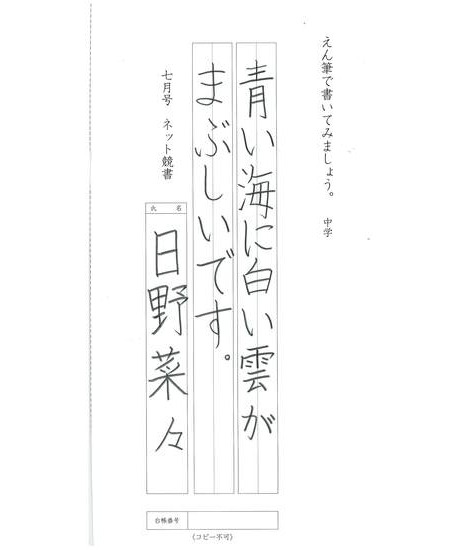 えん筆で書いてみましょう。 中学
青い海に白い雲が
まぶしいです。
七月号 ネット競書
氏名
日野菜々
台帳番号
《コピー不可》